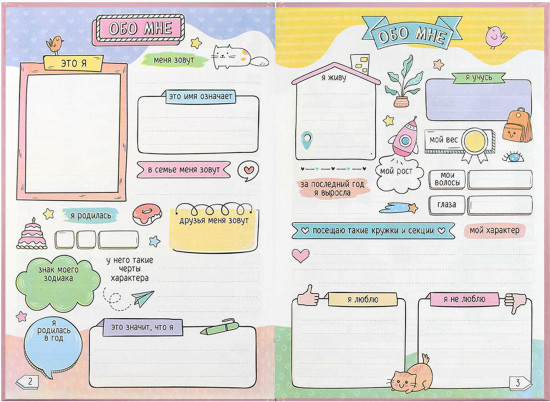 ОБО МНЕ
ЭТО Я
меня зовут
это имя означает
в семье меня зовут
я родилась
друзья меня зовут
знак моего
зодиака
у него такие
черты
характера
я
родилась
в год
это значит, что я
2
ОБО МНЕ
я живу
я учусь
мой вес
мой рост
за последний год
я выросла
мои
волосы
глаза
посещаю такие кружки и секции
мой характер
я люблю
я не люблю
3